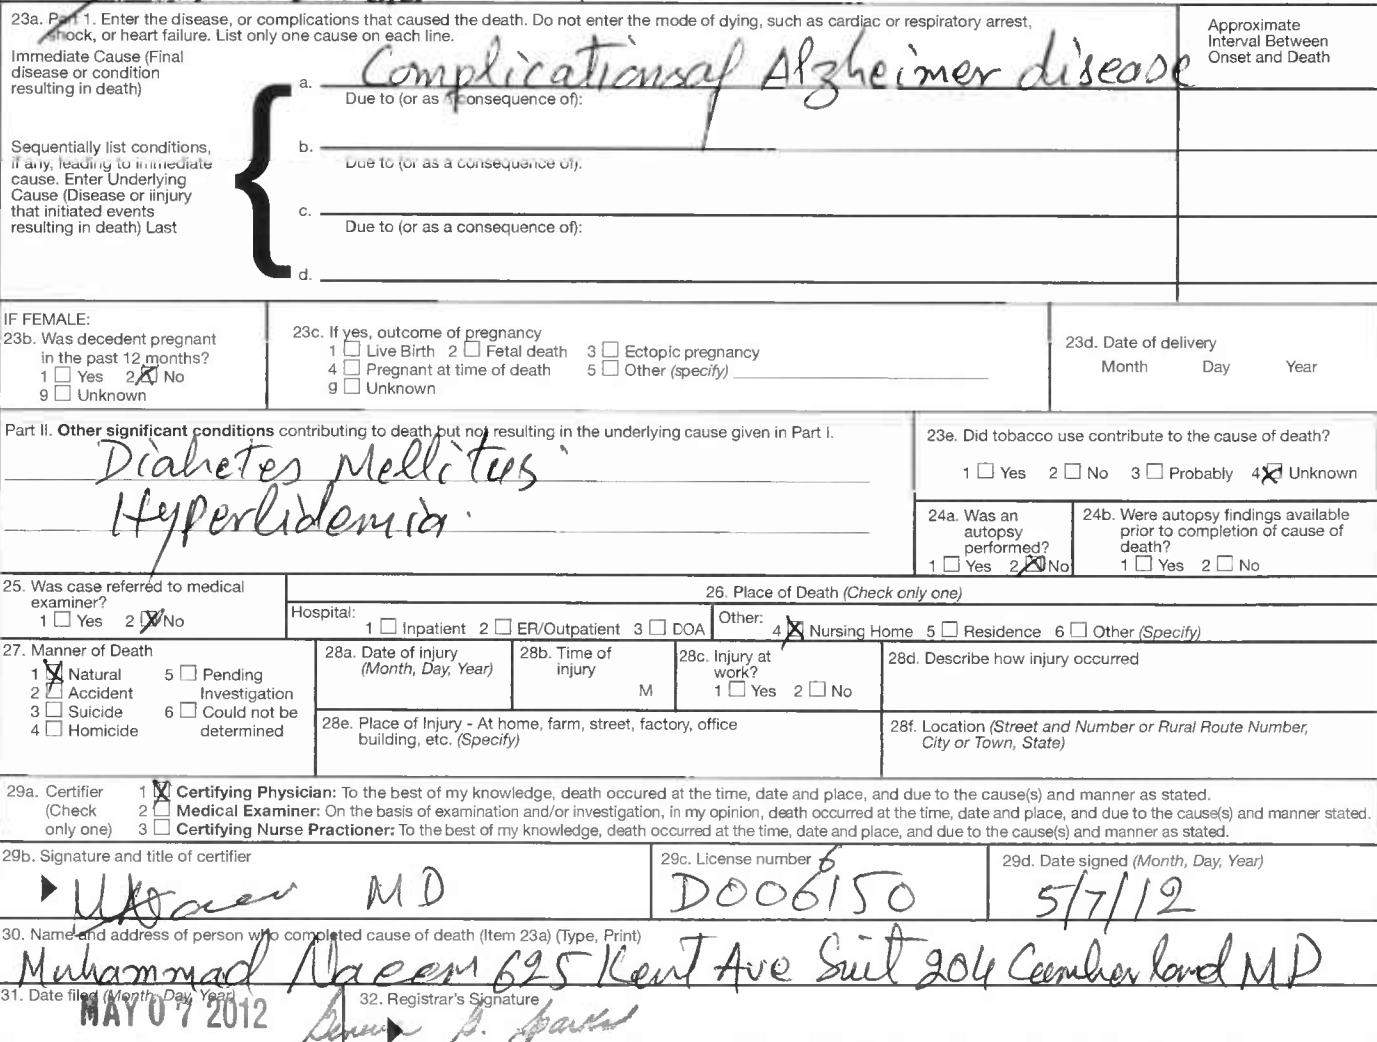 23a. Part 1. Enter the disease, or complications that caused the death. Do not enter the mode of dying, such as cardiac or respiratory arrest,
shock, or heart failure. List only one cause on each line.
Approximate
Interval Between
Onset and Death
Immediate Cause (Final
disease or condition
resulting in death)
a. Complications of Alzheimer disease
Due to (or as a consequence of):
Sequentially list conditions,
if any, leading to immediate
cause. Enter Underlying
Cause (Disease or iinjury
that initiated events
resulting in death) Last
b.
Due to (or as a consequence of):
c.
Due to (or as a consequence of):
d.
IF FEMALE:
23b. Was decedent pregnant
in the past 12 months?
1 Yes 2 No
9 Unknown
23c. If yes, outcome of pregnancy
1 Live Birth 2 Fetal death 3 Ectopic pregnancy
4 Pregnant at time of death 5 Other (specify)
9 Unknown
23d. Date of delivery
Month Day Year
Part II. Other significant conditions contributing to death but not resulting in the underlying cause given in Part I.
Diabetes Mellitus
Hyperlidemia
23e. Did tobacco use contribute to the cause of death?
1 Yes 2 No 3 Probably 4 Unknown
24a. Was an
autopsy
performed?
1 Yes 2 No
24b. Were autopsy findings available
prior to completion of cause of
death?
1 Yes 2 No
25. Was case referred to medical
examiner?
1 Yes 2 No
26. Place of Death (Check only one)
Hospital: 1 Inpatient 2 ER/Outpatient 3 DOA
Other: 4 Nursing Home 5 Residence 6 Other (Specify)
27. Manner of Death
1 Natural 5 Pending
2 Accident Investigation
3 Suicide 6 Could not be
4 Homicide determined
28a. Date of injury
(Month, Day, Year)
28b. Time of
injury
M
28c. Injury at
work?
1 Yes 2 No
28d. Describe how injury occurred
28e. Place of Injury - At home, farm, street, factory, office
building, etc. (Specify)
28f. Location (Street and Number or Rural Route Number,
City or Town, State)
29a. Certifier
(Check
only one)
1 Certifying Physician: To the best of my knowledge, death occured at the time, date and place, and due to the cause(s) and manner as stated.
2 Medical Examiner: On the basis of examination and/or investigation, in my opinion, death occurred at the time, date and place, and due to the cause(s) and manner stated.
3 Certifying Nurse Practioner: To the best of my knowledge, death occurred at the time, date and place, and due to the cause(s) and manner as stated.
29b. Signature and title of certifier
MD
29c. License number
6
D006150
29d. Date signed (Month, Day, Year)
5/7/12
30. Name and address of person who completed cause of death (Item 23a) (Type, Print)
Muhammad Naeem 625 Kent Ave Suit 204 Cumberland MD
31. Date filed (Month, Day, Year)
MAY 07 2012
32. Registrar's Signature